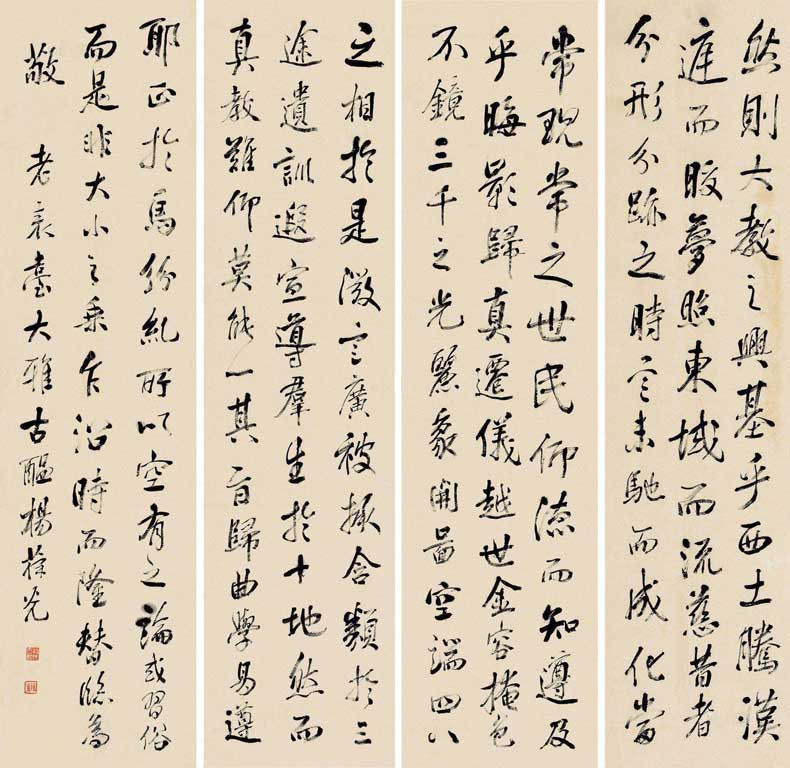 然則大教之興基乎西土騰漢
庭而皎夢照東域而流慈昔者
分形分跡之時言未馳而成化當
常現常之世民仰德而知遵及
乎晦影歸真遷儀越世金容掩色
不鏡三千之光麗象開圖空端四八
之相於是微言廣被拯含類於三
途遺訓遐宣導羣生於十地然而
真教難仰莫能一其旨歸曲學易遵
耶正於焉紛糺所以空有之論或習俗
而是非大小之乘乍沿時而隆替臨為
敬老臺大雅古醞楊葆光